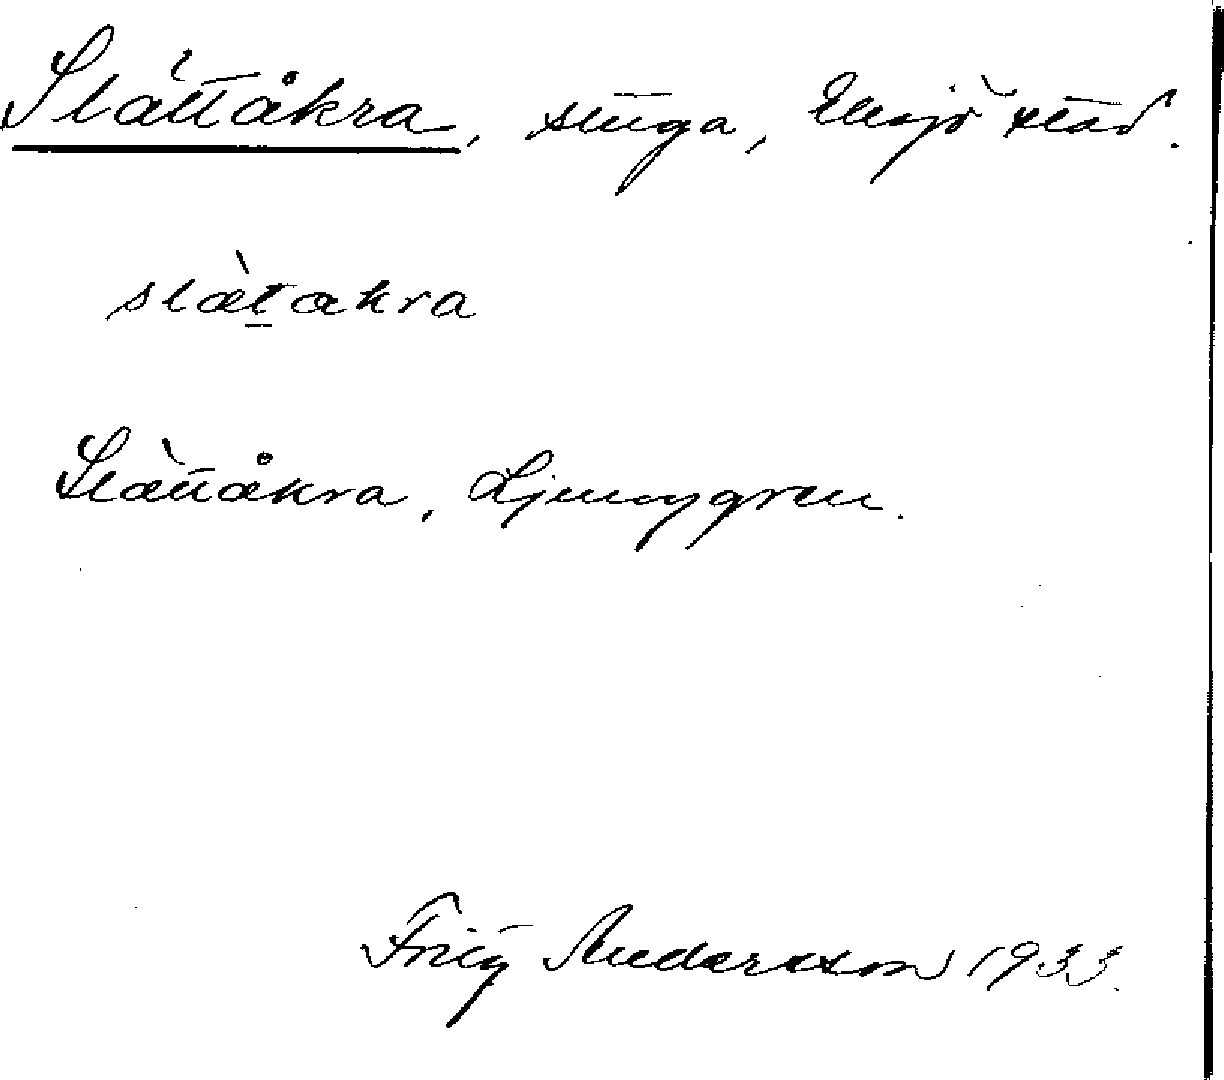 Slättåkra, stuga, Eksjö stad.
slætakra
Slättåkra, Ljunggren.
Fritz Andersson 1933.